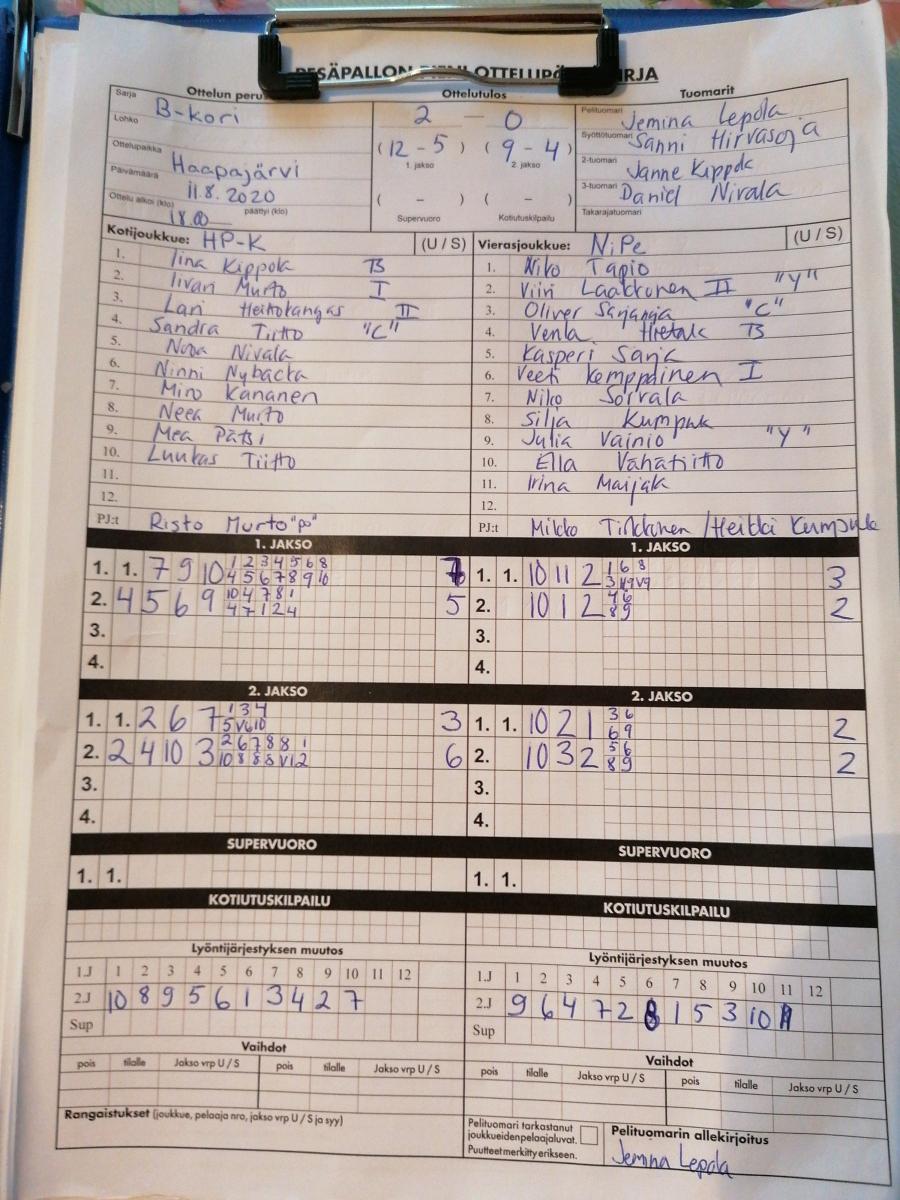 PESÄPALLON PIENI OTTELUPÖYTÄKIRJA
Ottelun perus
Ottelutulos
Tuomarit
Sarja B-kori
Lohko
Ottelupaikka Haapajärvi
Päivämäärä 11.8.2020
Ottelu alkoi (klo) 18.00 päättyi (klo)
2 — 0
( 12 - 5 ) ( 9 - 4 )
1. jakso 2. jakso
( - ) ( - )
Supervuoro Kotiutuskilpailu
Pelituomari Jemina Lepola
Syöttötuomari Sanni Hirvasoja
2-tuomari Janne Kippola
3-tuomari Daniel Nivala
Takarajatuomari
Kotijoukkue: HP-K (U / S)
1. Iina Kippola B
2. Iivari Murto I
3. Lari Heitokangas II
4. Sandra Tiitto "C"
5. Noora Nivala
6. Ninni Nybacka
7. Miro Kananen
8. Neea Murto
9. Mea Pätsi
10. Luukas Tiitto
11.
12.
PJ:t Risto Murto "po"
Vierasjoukkue: NiPe (U / S)
1. Niko Tapio
2. Viivi Laakkonen II "Y"
3. Oliver Sarjanoja "C"
4. Venla Hietala B
5. Kasperi Sarja
6. Veeti Kemppainen I
7. Niko Sorvala
8. Silja Kumpula
9. Julia Vainio "Y"
10. Ella Vähätiitto
11. Irina Maijala
12.
PJ:t Mikko Tirkkonen / Heikki Kumpula
1. JAKSO
1. 1. 7 9 10 1 2 3 4 5 6 8 7
4 5 6 7 8 9 10
2. 4 5 6 9 10 4 7 8 1 5
4 7 1 2 4
3.
4.
1. JAKSO
1. 1. 10 11 2 1 6 8 3
3 49 V9
2. 10 1 2 4 6 2
8 9
3.
4.
2. JAKSO
1. 1. 2 6 7 1 3 4 3
5 V6 10
2. 2 4 10 3 2 6 7 8 8 1 6
10 8 8 8 V1 2
3.
4.
2. JAKSO
1. 1. 10 2 1 3 6 2
6 9
2. 10 3 2 5 6 2
8 9
3.
4.
SUPERVUORO
1. 1.
SUPERVUORO
1. 1.
KOTIUTUSKILPAILU
KOTIUTUSKILPAILU
Lyöntijärjestyksen muutos
1.J 1 2 3 4 5 6 7 8 9 10 11 12
2.J 10 8 9 5 6 1 3 4 2 7
Sup
Lyöntijärjestyksen muutos
1.J 1 2 3 4 5 6 7 8 9 10 11 12
2.J 9 6 4 7 2 8 1 5 3 10 11
Sup
Vaihdot
pois tilalle Jakso vrp U / S pois tilalle Jakso vrp U / S
Vaihdot
pois tilalle Jakso vrp U / S pois tilalle Jakso vrp U / S
Rangaistukset (joukkue, pelaaja nro, jakso vrp U / S ja syy)
Pelituomari tarkastanut
joukkueiden pelaajaluvat.
Puutteet merkitty erikseen.
Pelituomarin allekirjoitus
Jemina Lepola